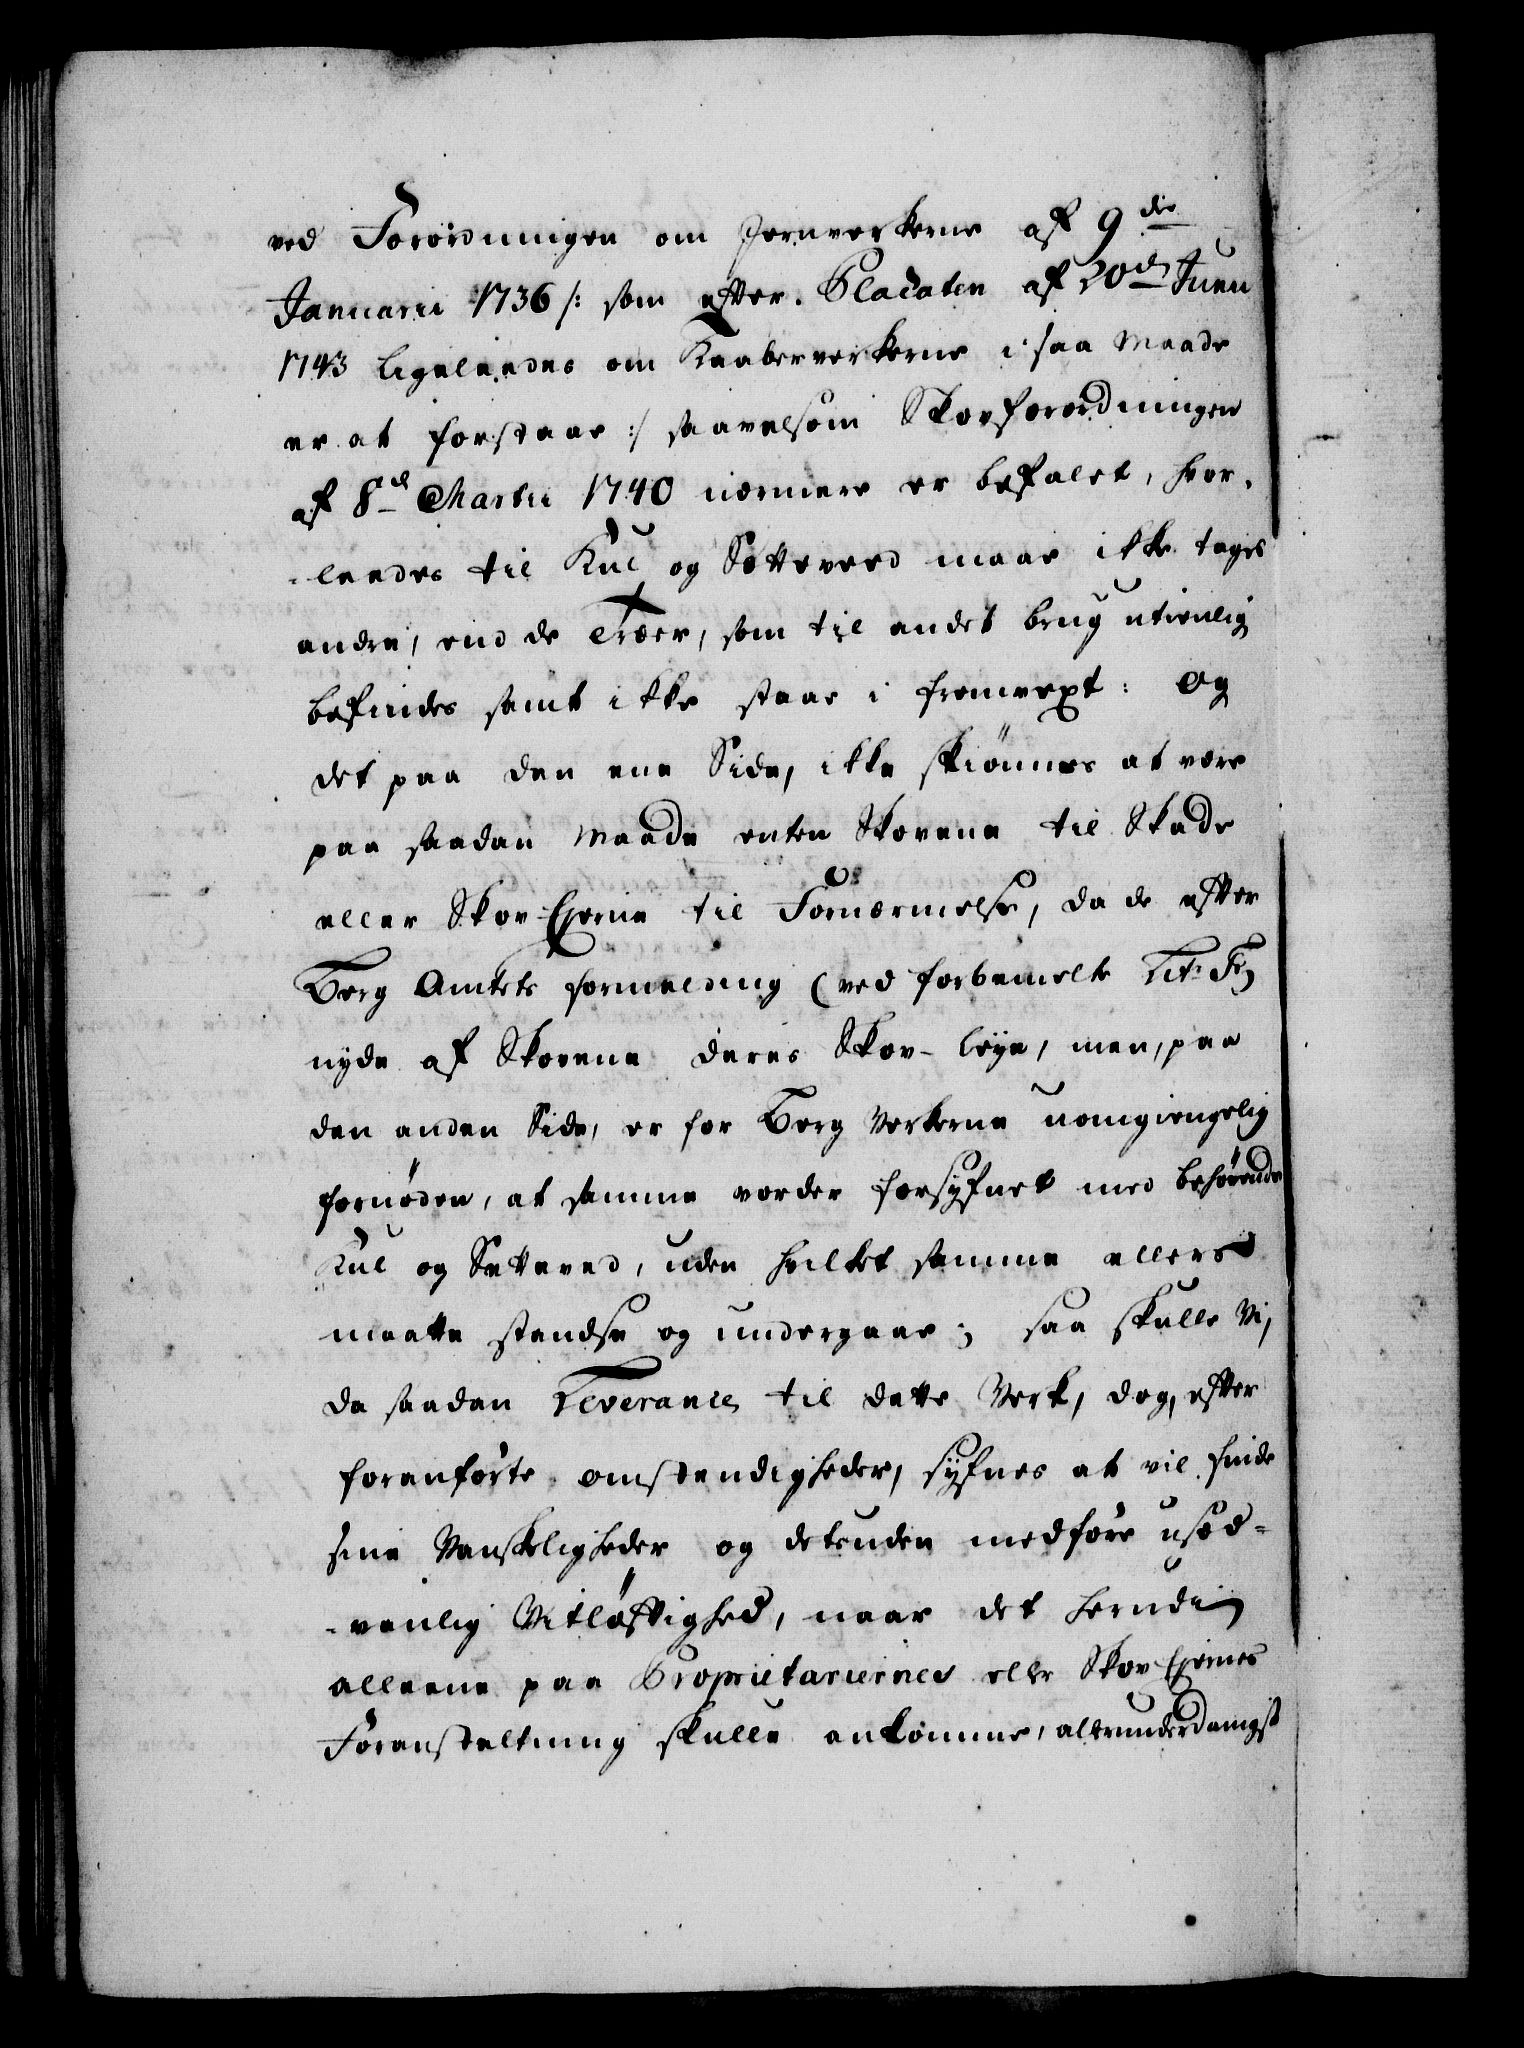 ved Forordningen om Jernverkerne af 9die
Januarii 1736 /: som efter Placaten af 20de Junii
1743 ligeleedes om Kaaberverkerne i saa Maade
er at forstaae :/ saavelsom Skovforordningen
af 8d Martii 1740 nærmere er befalet, hvor-
-leedes til Kul og Sætteveed maae ikke tages
andre, end de Træer, som til andet brug utienlig
befindes samt ikke staae i fremvext: Og
det paa den ene Side, ikke skiönnes at være
paa saadan Maade enten Skovene til Skade
eller Skov-Ejerne til Fornærmelse, da de efter
Berg Amtets formelding (ved forbemelte Litr: F)
nyde af Skovene deres Skov-leye, men, paa
den anden Side, er for Berg Verkerne uomgiengelig
fornöden, at samme vorder forsyfnet med behörende
Kul og Setteved, uden hvilket samme ellers
maatte standse og undergaae; saa skulle Vi,
da saadan Leverance til dette Verk, dog, efter
foranförte omstendigheder, syfnes at vil finde
sine Vanskeligheder og desuden medföre usæd-
-vanlig Vitlöftighed, naar det herudi
alleene paa Proprietariernes eller Skov Ejernes
Foranstaltning skulle ankomme, allerunderdanigst